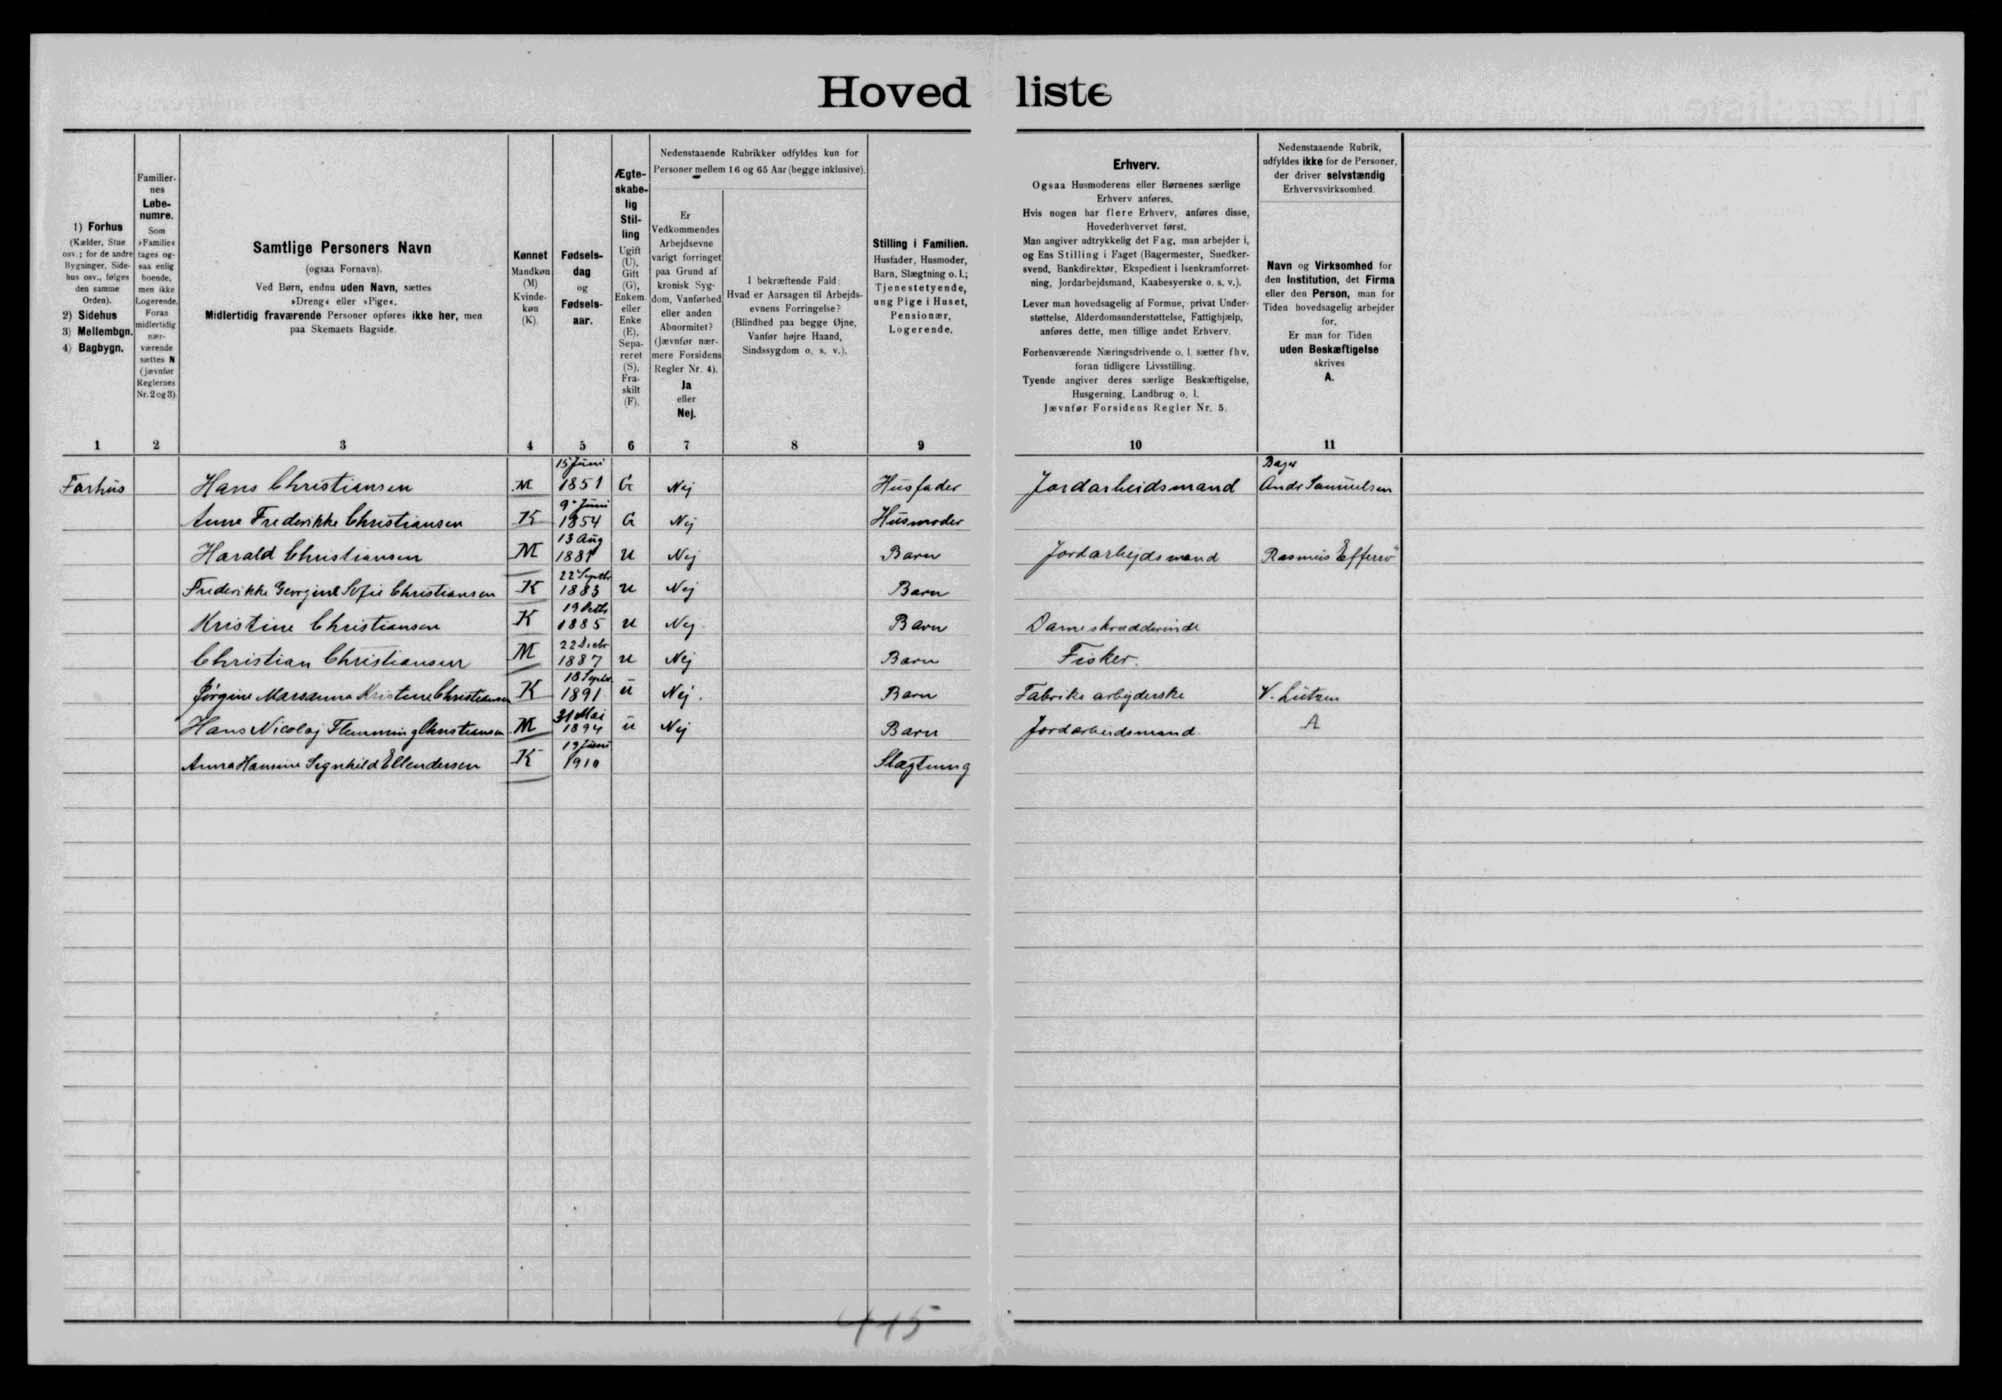 Hovedliste
1) Forhus
(Kælder, Stue
osv.; for de andre
Bygninger, Side-
hus osv., følges
den samme
Orden).
2) Sidehus
3) Mellembgn.
4) Bagbygn.
Familier-
nes
Løbe-
numre.
Som
»Familie«
tages og-
saa enlig
boende,
men ikke
Logerende.
Foran
midlertidig
nær-
værende
sættes N
(jævnfør
Reglernes
Nr. 2 og 3)
Samtlige Personers Navn
(ogsaa Fornavn).
Ved Børn, endnu uden Navn, sættes
»Dreng« eller »Pige«.
Midlertidig fraværende Personer opføres ikke her, men
paa Skemaets Bagside.
Kønnet
Mandkøn
(M)
Kvinde-
køn
(K).
Fødsels-
dag
og
Fødsels-
aar.
Ægte-
skabe-
lig
Stil-
ling
Ugift
(U),
Gift
(G),
Enkem.
eller
Enke
(E),
Sepa-
reret
(S),
Fra-
skilt
(F).
Nedenstaaende Rubrikker udfyldes kun for
Personer mellem 16 og 65 Aar (begge inklusive).
Er
Vedkommendes
Arbejdsevne
varigt forringet
paa Grund af
kronisk Syg-
dom, Vanførhed
eller anden
Abnormitet?
(Jævnfør nær-
mere Forsidens
Regler Nr. 4).
Ja
eller
Nej.
I bekræftende Fald:
Hvad er Aarsagen til Arbejds-
evnens Forringelse?
(Blindhed paa begge Øjne,
Vanfør højre Haand,
Sindssygdom o. s. v.).
Stilling i Familien.
Husfader, Husmoder,
Barn, Slægtning o. l.;
Tjenestetyende,
ung Pige i Huset,
Pensionær,
Logerende.
Erhverv.
Ogsaa Husmoderens eller Børnenes særlige
Erhverv anføres.
Hvis nogen har flere Erhverv, anføres disse,
Hovederhvervet først.
Man angiver udtrykkelig det Fag, man arbejder i,
og Ens Stilling i Faget (Bagermester, Snedker-
svend, Bankdirektør, Ekspedient i Isenkramforret-
ning, Jordarbejdsmand, Kaabesyerske o. s. v.).
Lever man hovedsagelig af Formue, privat Under-
støttelse, Alderdomsunderstøttelse, Fattighjælp,
anføres dette, men tillige andet Erhverv.
Forhenværende Næringsdrivende o. l. sætter fhv.
foran tidligere Livsstilling.
Tyende angiver deres særlige Beskæftigelse,
Husgerning, Landbrug o. l.
Jævnfør Forsidens Regler Nr. 5.
Nedenstaaende Rubrik,
udfyldes ikke for de Personer,
der driver selvstændig
Erhvervsvirksomhed.
Navn og Virksomhed for
den Institution, det Firma
eller den Person, man for
Tiden hovedsagelig arbejder
for.
Er man for Tiden
uden Beskæftigelse
skrives
A.
1 2 3 4 5 6 7 8 9 10 11
15 Juni Bager
Forhus Hans Christiansen M 1851 G Nej Husfader Jordarbeidsmand Andr Samuelsen
9 Juni
Anne Frederikke Christiansen K 1854 G Nej Husmoder
13 Aug
Harald Christiansen M 1881 U Nej Barn Jordarbejdsmand Rasmus
22 Septbr
Frederikke Georgine Sofie Christiansen K 1883 U Nej Barn
Kristine Christiansen K 1885 U Nej Barn Dameskrædderinde
Christian Christiansen M 1887 U Nej Barn Fisker.
18 Septbr
Jørgine Marianna Kristine Christiansen K 1891 U Nej. Barn Fabriks arbejderske V. Lützen
31 Mai
Hans Nicolaj Flemming Christiansen M 1894 U Nej Barn Jordarbeidsmand. A
19 Juni
Anna Hansine Signhild Ellendersen K 1910 Slægtning
415